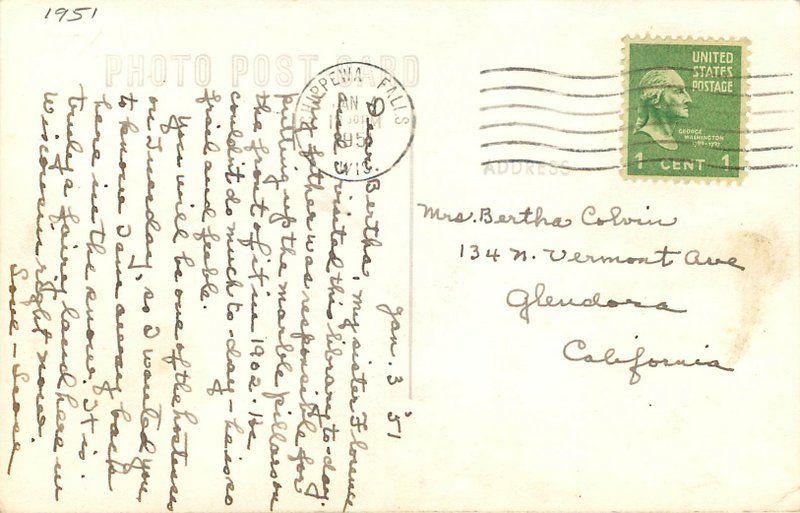 1951
PHOTO POST CARD
CHIPPEWA FALLS
JAN
1951
WIS.
UNITED
STATES
POSTAGE
GEORGE
WASHINGTON
1 CENT 1
ADDRESS
Mrs. Bertha Colvin
134 N. Vermont Ave
Glendora
California
Jan. 3 '51
Dear Bertha, my sister Florence
and I visited this library to-day.
My father was responsible for
putting up the marble pillars on
the front of it in 1902. He
couldn't do much to-day - he is so
frail and feeble.
You will be one of the hostesses
on Tuesday, so I wanted you
to know I am away back
here in the snow. It is
truly a fairy land here in
Wisconsin right now.
Love -